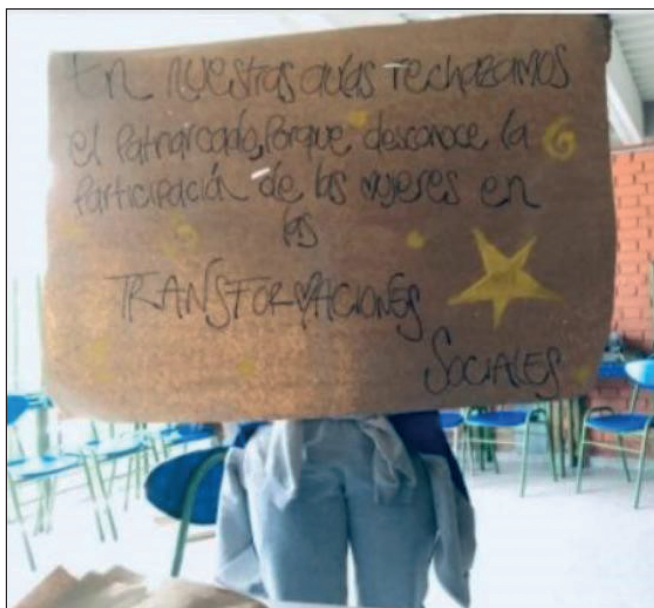 En nuestras aulas rechazamos
el Patriarcado, Porque desconoce la
Participación de las mujeres en
las
TRANSFORMACIONES
SOCIALES